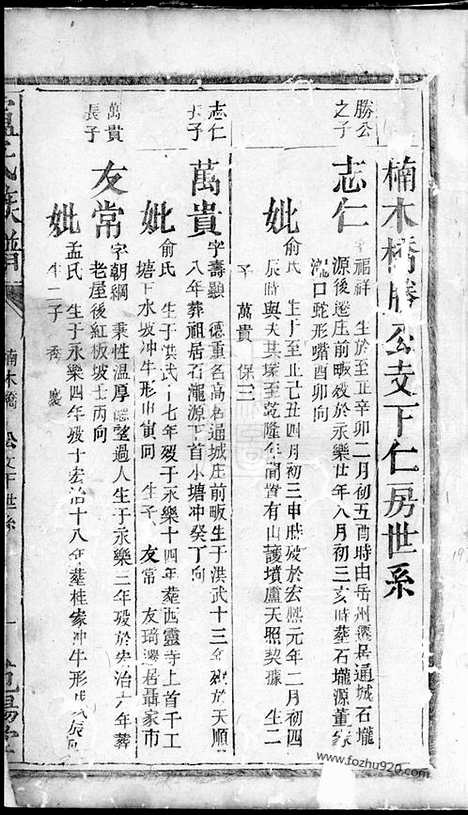 楠木橋勝公支下仁房世系
勝公
之子
志仁
福祥 生於至正辛卯二月初五酉時由岳州遷居通城石壠
源後遷庄前畈歿於永樂廿年八月初三亥時葬石壠源董家
壠口蛇形嘴酉卯向
妣
俞氏 生于至正己丑四月初三申時歿於宏熙元年二月初四
辰時與夫共塚至乾隆年間置有山護墳盧天照契據 生二
子 萬貴 保三
志仁
長子
萬貴
字壽顯 德重名高移通城庄前畈生于洪武十三年歿於天順
八年葬祖居石壠源下首小塘冲癸丁向
妣
俞氏 生于洪武十七年歿于永樂十四年葬西靈寺上首千工
塘下水坡冲牛形山寅向 生子 友常 友琦遷居聶家市
萬貴
長子
友常
字朝綱 秉性温厚 望過人生于永樂二年歿於宏治六年葬
老屋後紅板坡壬丙向
妣
孟氏 生于永樂四年歿于宏治十八年葬桂家冲牛形戌辰向
生二子 秀 慶
氏族譜
楠木橋 公支下世系
一
堂
www.fozhu920.com